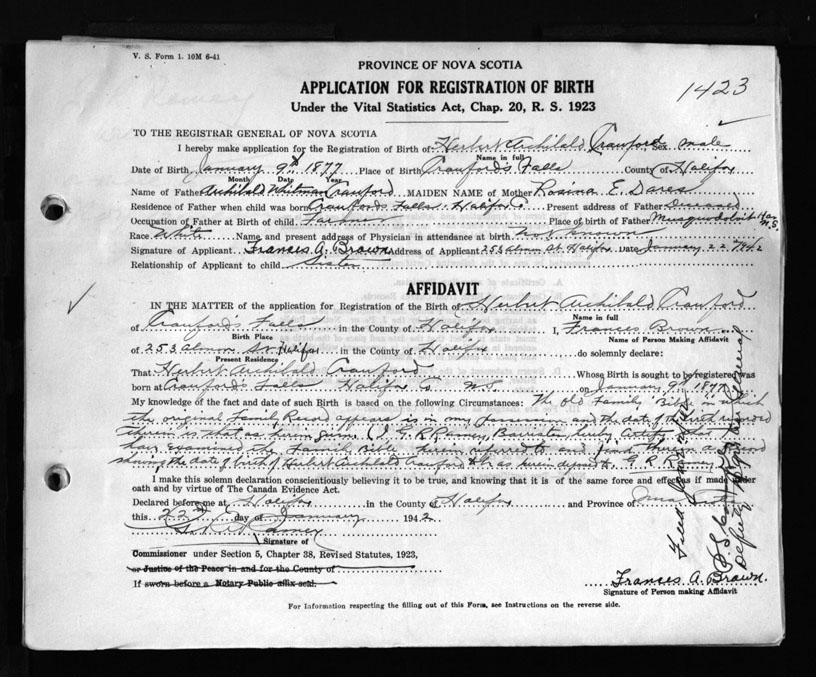 V. S. Form 1. 10M 6-41
PROVINCE OF NOVA SCOTIA
APPLICATION FOR REGISTRATION OF BIRTH
1423
Under the Vital Statistics Act, Chap. 20, R. S. 1923
TO THE REGISTRAR GENERAL OF NOVA SCOTIA
I hereby make application for the Registration of Birth of Herbert Archibald Crawford Sex male
Name in full
Date of Birth January 9th 1877 Place of Birth Crawford's Falls County of Halifax
Month Date Year
Name of Father Archibald Whitman Crawford MAIDEN NAME of Mother Rosina E. Dares
Residence of Father when child was born Crawford's Falls Halifax Co. Present address of Father Deceased
Occupation of Father at Birth of child Farmer Place of birth of Father Musquodoboit Har. N.S.
Race White Name and present address of Physician in attendance at birth not known
Signature of Applicant Frances A. Brown Address of Applicant 253 Almon St. Halifax Date January 22 1942
Relationship of Applicant to child Sister
AFFIDAVIT
IN THE MATTER of the application for Registration of the Birth of Herbert Archibald Crawford
Name in full
of Crawford's Falls in the County of Halifax I, Frances Brown
Birth Place Name of Person Making Affidavit
of 253 Almon St. Halifax in the County of Halifax do solemnly declare:
Present Residence
That Herbert Archibald Crawford Whose Birth is sought to be registered was
born at Crawford's Falls Halifax Co. N.S. on January 9th 1877
My knowledge of the fact and date of such Birth is based on the following Circumstances: The Old Family Bible in which
the original Family Record appears is in my possession and the date of birth recorded
therein is that as herein given. (I, G. R. Ramey, Barrister, hereby certify that I
have examined the Family Bible herein referred to and find thereon a record
showing the date of birth of Herbert Archibald Crawford to be as herein deposed to. G. R. Ramey
I make this solemn declaration conscientiously believing it to be true, and knowing that it is of the same force and effect as if made under
oath and by virtue of The Canada Evidence Act.
Declared before me at Halifax in the County of Halifax and Province of Nova Scotia
this 22nd day of January 1942
G. R. Ramey
Signature of
Commissioner under Section 5, Chapter 38, Revised Statutes, 1923,
or Justice of the Peace in and for the County of
If sworn before a Notary Public affix seal.
Frances A. Brown.
Signature of Person making Affidavit
For Information respecting the filling out of this Form, see Instructions on the reverse side.
Filed
Deputy Registrar General